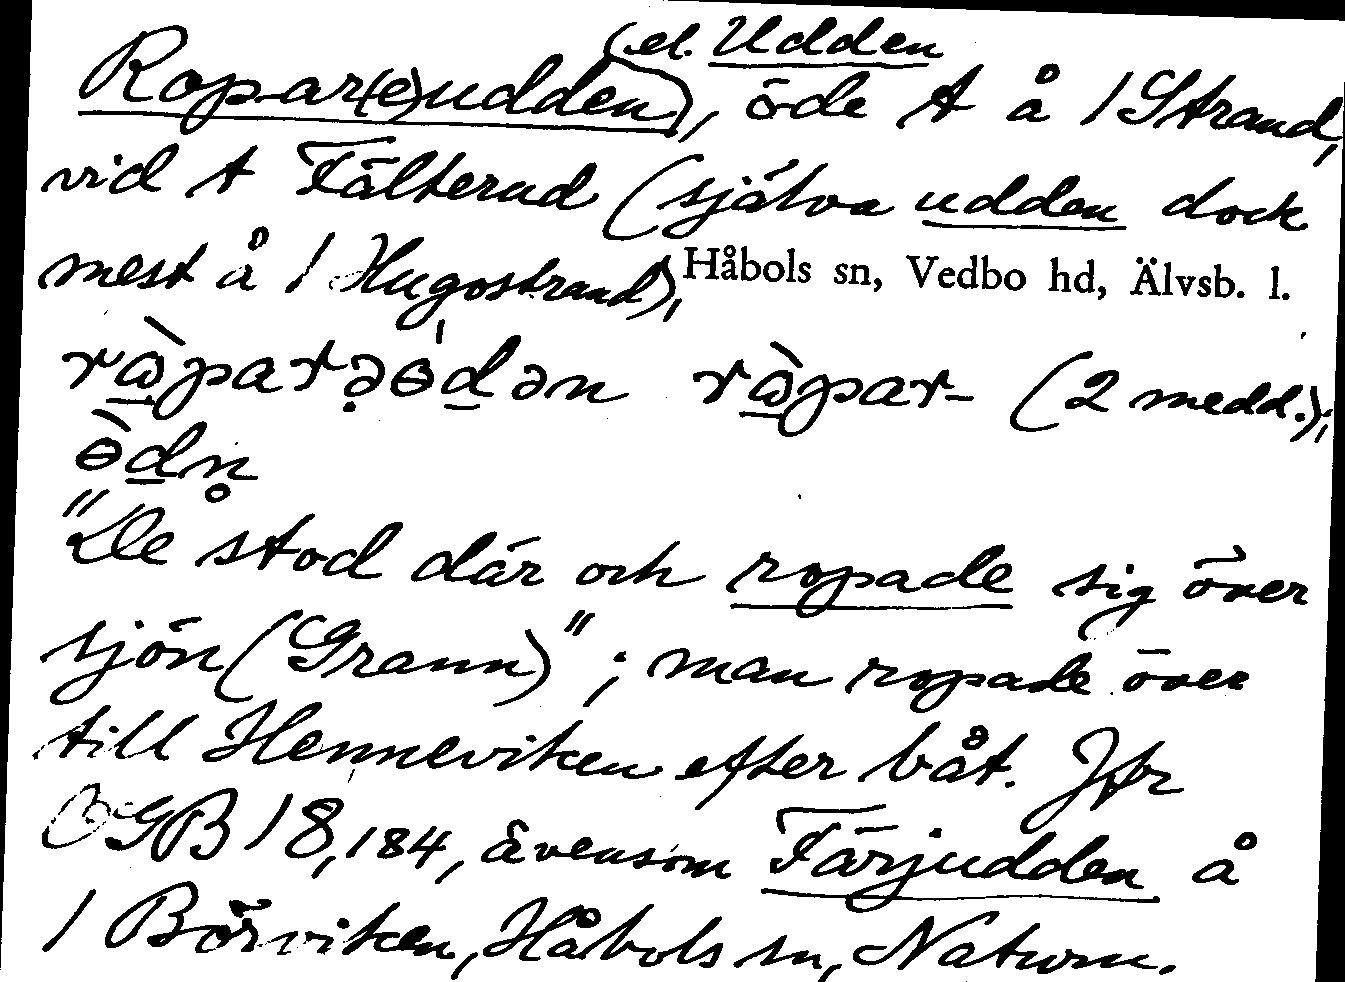 (el. Udden
Ropar(e)udden), öde t å 1 Strand,
vid t Fälterud (själva udden dock
mest å 1 Hugostrand), Håbols sn, Vedbo hd, Älvsb. l.
"De stod där och ropade sig över
sjön (Grann)"; man ropade över
till Henneviken efter båt. Jfr
OGB 18,184, ävensom Färjudden å
1 Börviken, Håbols sn, Naturn.
ràparəɵ́dən ràpar- (2 medd.);
ɵ̀dn̥